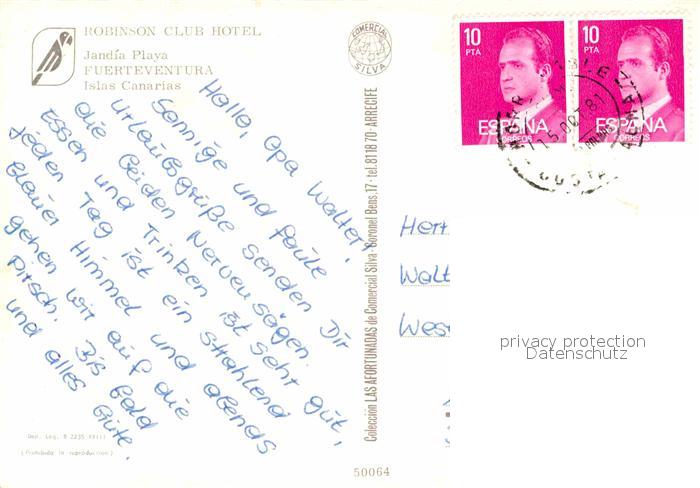 ROBINSON CLUB HOTEL
Jandía Playa
FUERTEVENTURA
Islas Canarias
Hallo, Opa Walter!
Sonnige und faule
Urlaubsgrüße senden Dir
die beiden Nervensägen.
Essen und Trinken ist sehr gut,
jeden Tag ist ein strahlend
blauer Himmel und abends
gehen wir auf die
Pirsch. Bis bald
und alles Gute.
Dep. Leg. B 2235
(Prohibida la reproducción)
COMERCIAL
SILVA
Colección LAS AFORTUNADAS de Comercial Silva - Coronel Bens, 17 - tel. 81 18 70 - ARRECIFE
50064
10
PTA
ESPAÑA
CORREOS
10
PTA
ESPAÑA
CORREOS
15 OCT 81
Herr
Walt
Wes
privacy protection
Datenschutz